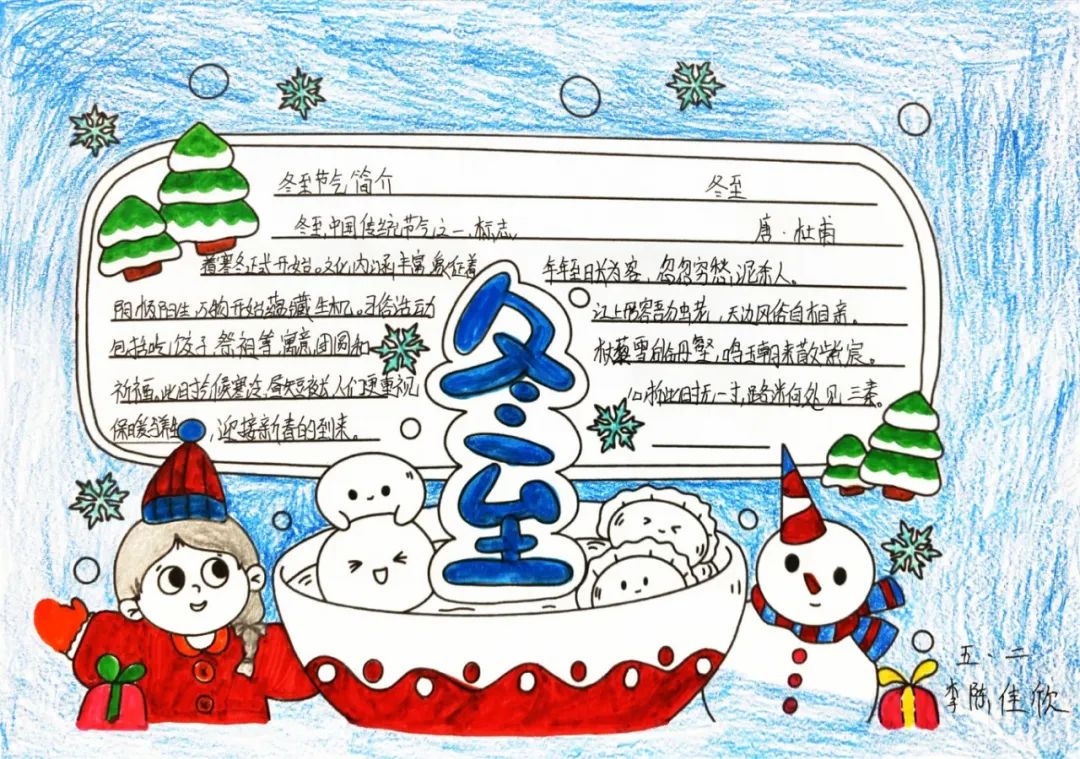 冬至节气简介
冬至,中国传统节气之一,标志
着寒冬正式开始。文化内涵丰富,象征着
阴极阳生,万物开始蕴藏生机。习俗活动
包括吃饺子,祭祖等,寓意团圆和
祈福。此时气候寒冷,昼短夜长,人们更重视
保暖与养生,迎接新春的到来。
冬至
唐·杜甫
年年至日长为客,忽忽穷愁泥杀人。
江上形容吾独老,天边风俗自相亲。
杖藜雪后临丹壑,鸣玉朝来散紫宸。
心折此时无一寸,路迷何处见三秦。
冬至
五·二
李陈佳欣